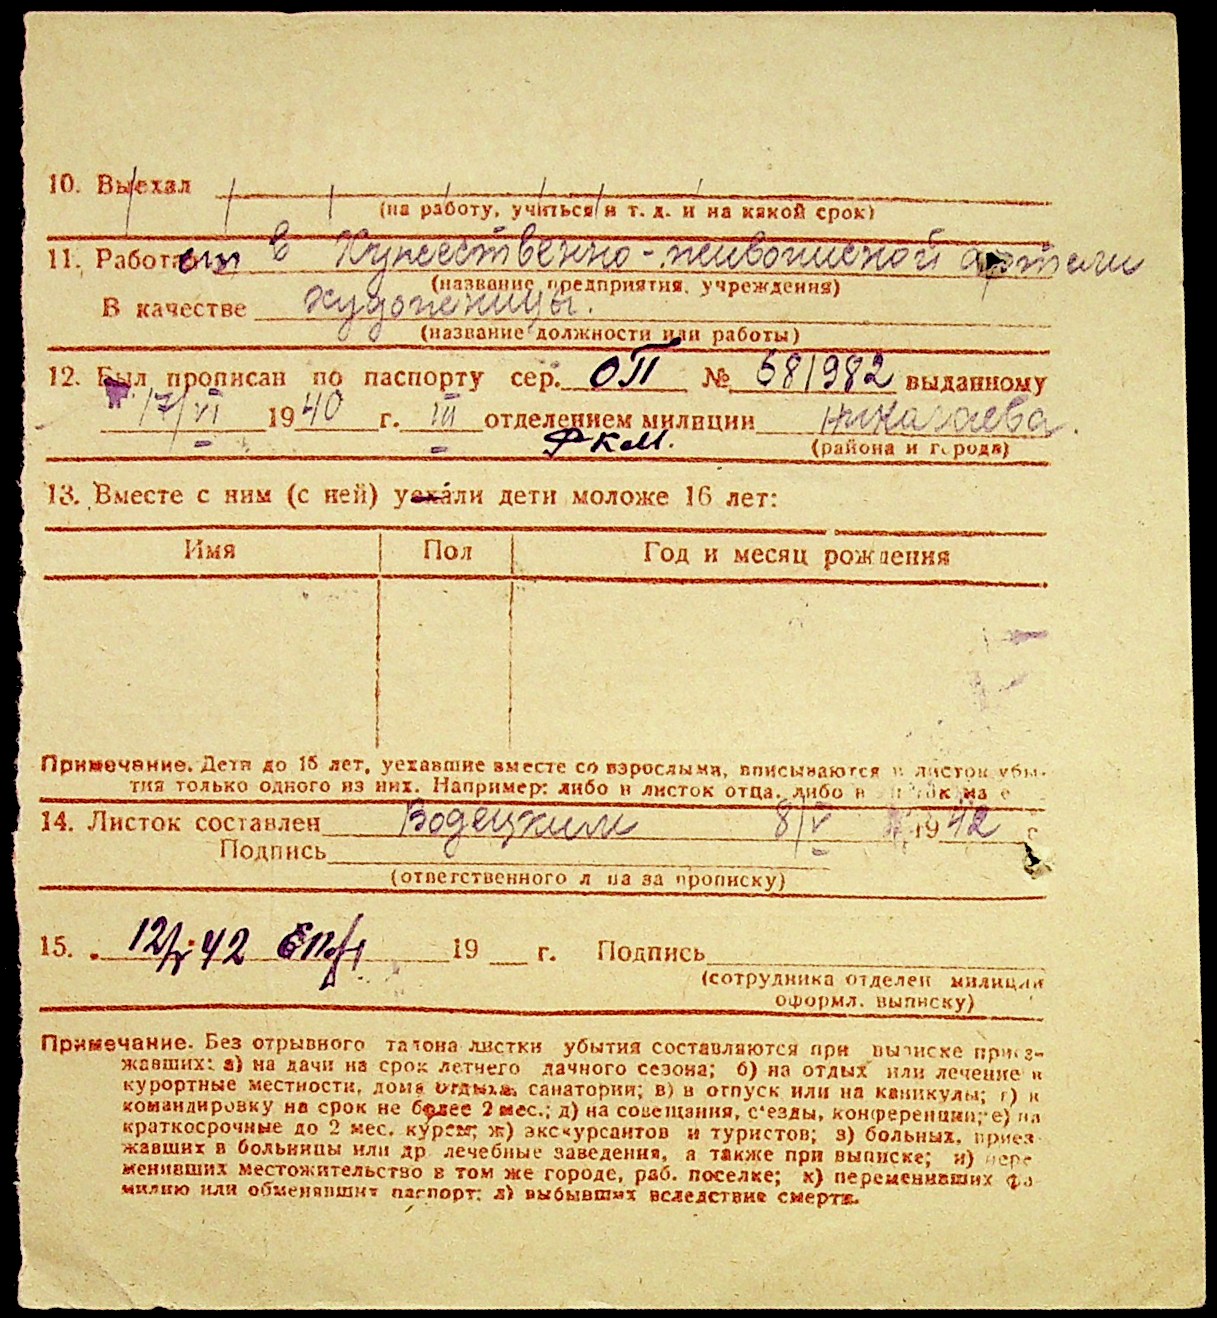 10. Выехал
(на работу, учиться и т. д. и на какой срок)
11. Работает в Художественно-живописной артели
(название предприятия, учреждения)
В качестве художницы.
(название должности или работы)
12. Был прописан по паспорту сер. ОП № 681982 выданному
17/VI 1940 г. III отделением милиции Николаева.
РКМ. (района и города)
13. Вместе с ним (с ней) уехали дети моложе 16 лет:
Имя Пол Год и месяц рождения
Примечание. Дети до 16 лет, уехавшие вместе со взрослыми, вписываются в листок убы-
тия только одного из них. Например: либо в листок отца, либо в
14. Листок составлен Водецким 8/V 1942 г
Подпись
(ответственного л ца за прописку)
15. 12/V-42 19 г. Подпись
(сотрудника отделен милиции
оформл. выписку)
Примечание. Без отрывного талона листки убытия составляются при выписке приез-
жавших: а) на дачи на срок летнего дачного сезона; б) на отдых или лечение в
курортные местности, дома отдыха, санатории; в) в отпуск или на каникулы; г) в
командировку на срок не более 2 мес.; д) на совещания, с'езды, конференции; е) на
краткосрочные до 2 мес. курсы; ж) экскурсантов и туристов; з) больных, приез-
жавших в больницы или др. лечебные заведения, а также при выписке; и) пере
менивших местожительство в том же городе, раб. поселке; к) переменивших фа
милию или обменявших паспорт; л) выбывших вследствие смерти.